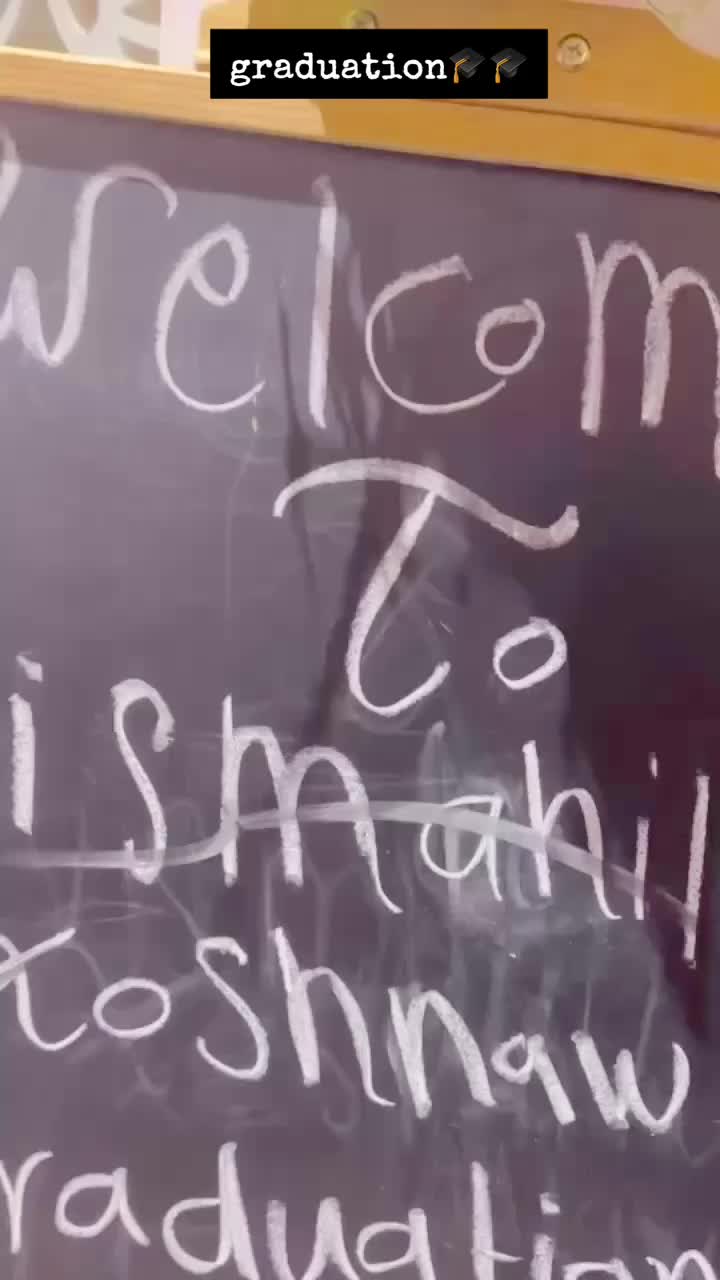 graduation🎓🎓
Welcom
To
ismahil
Xoshnaw
raduation